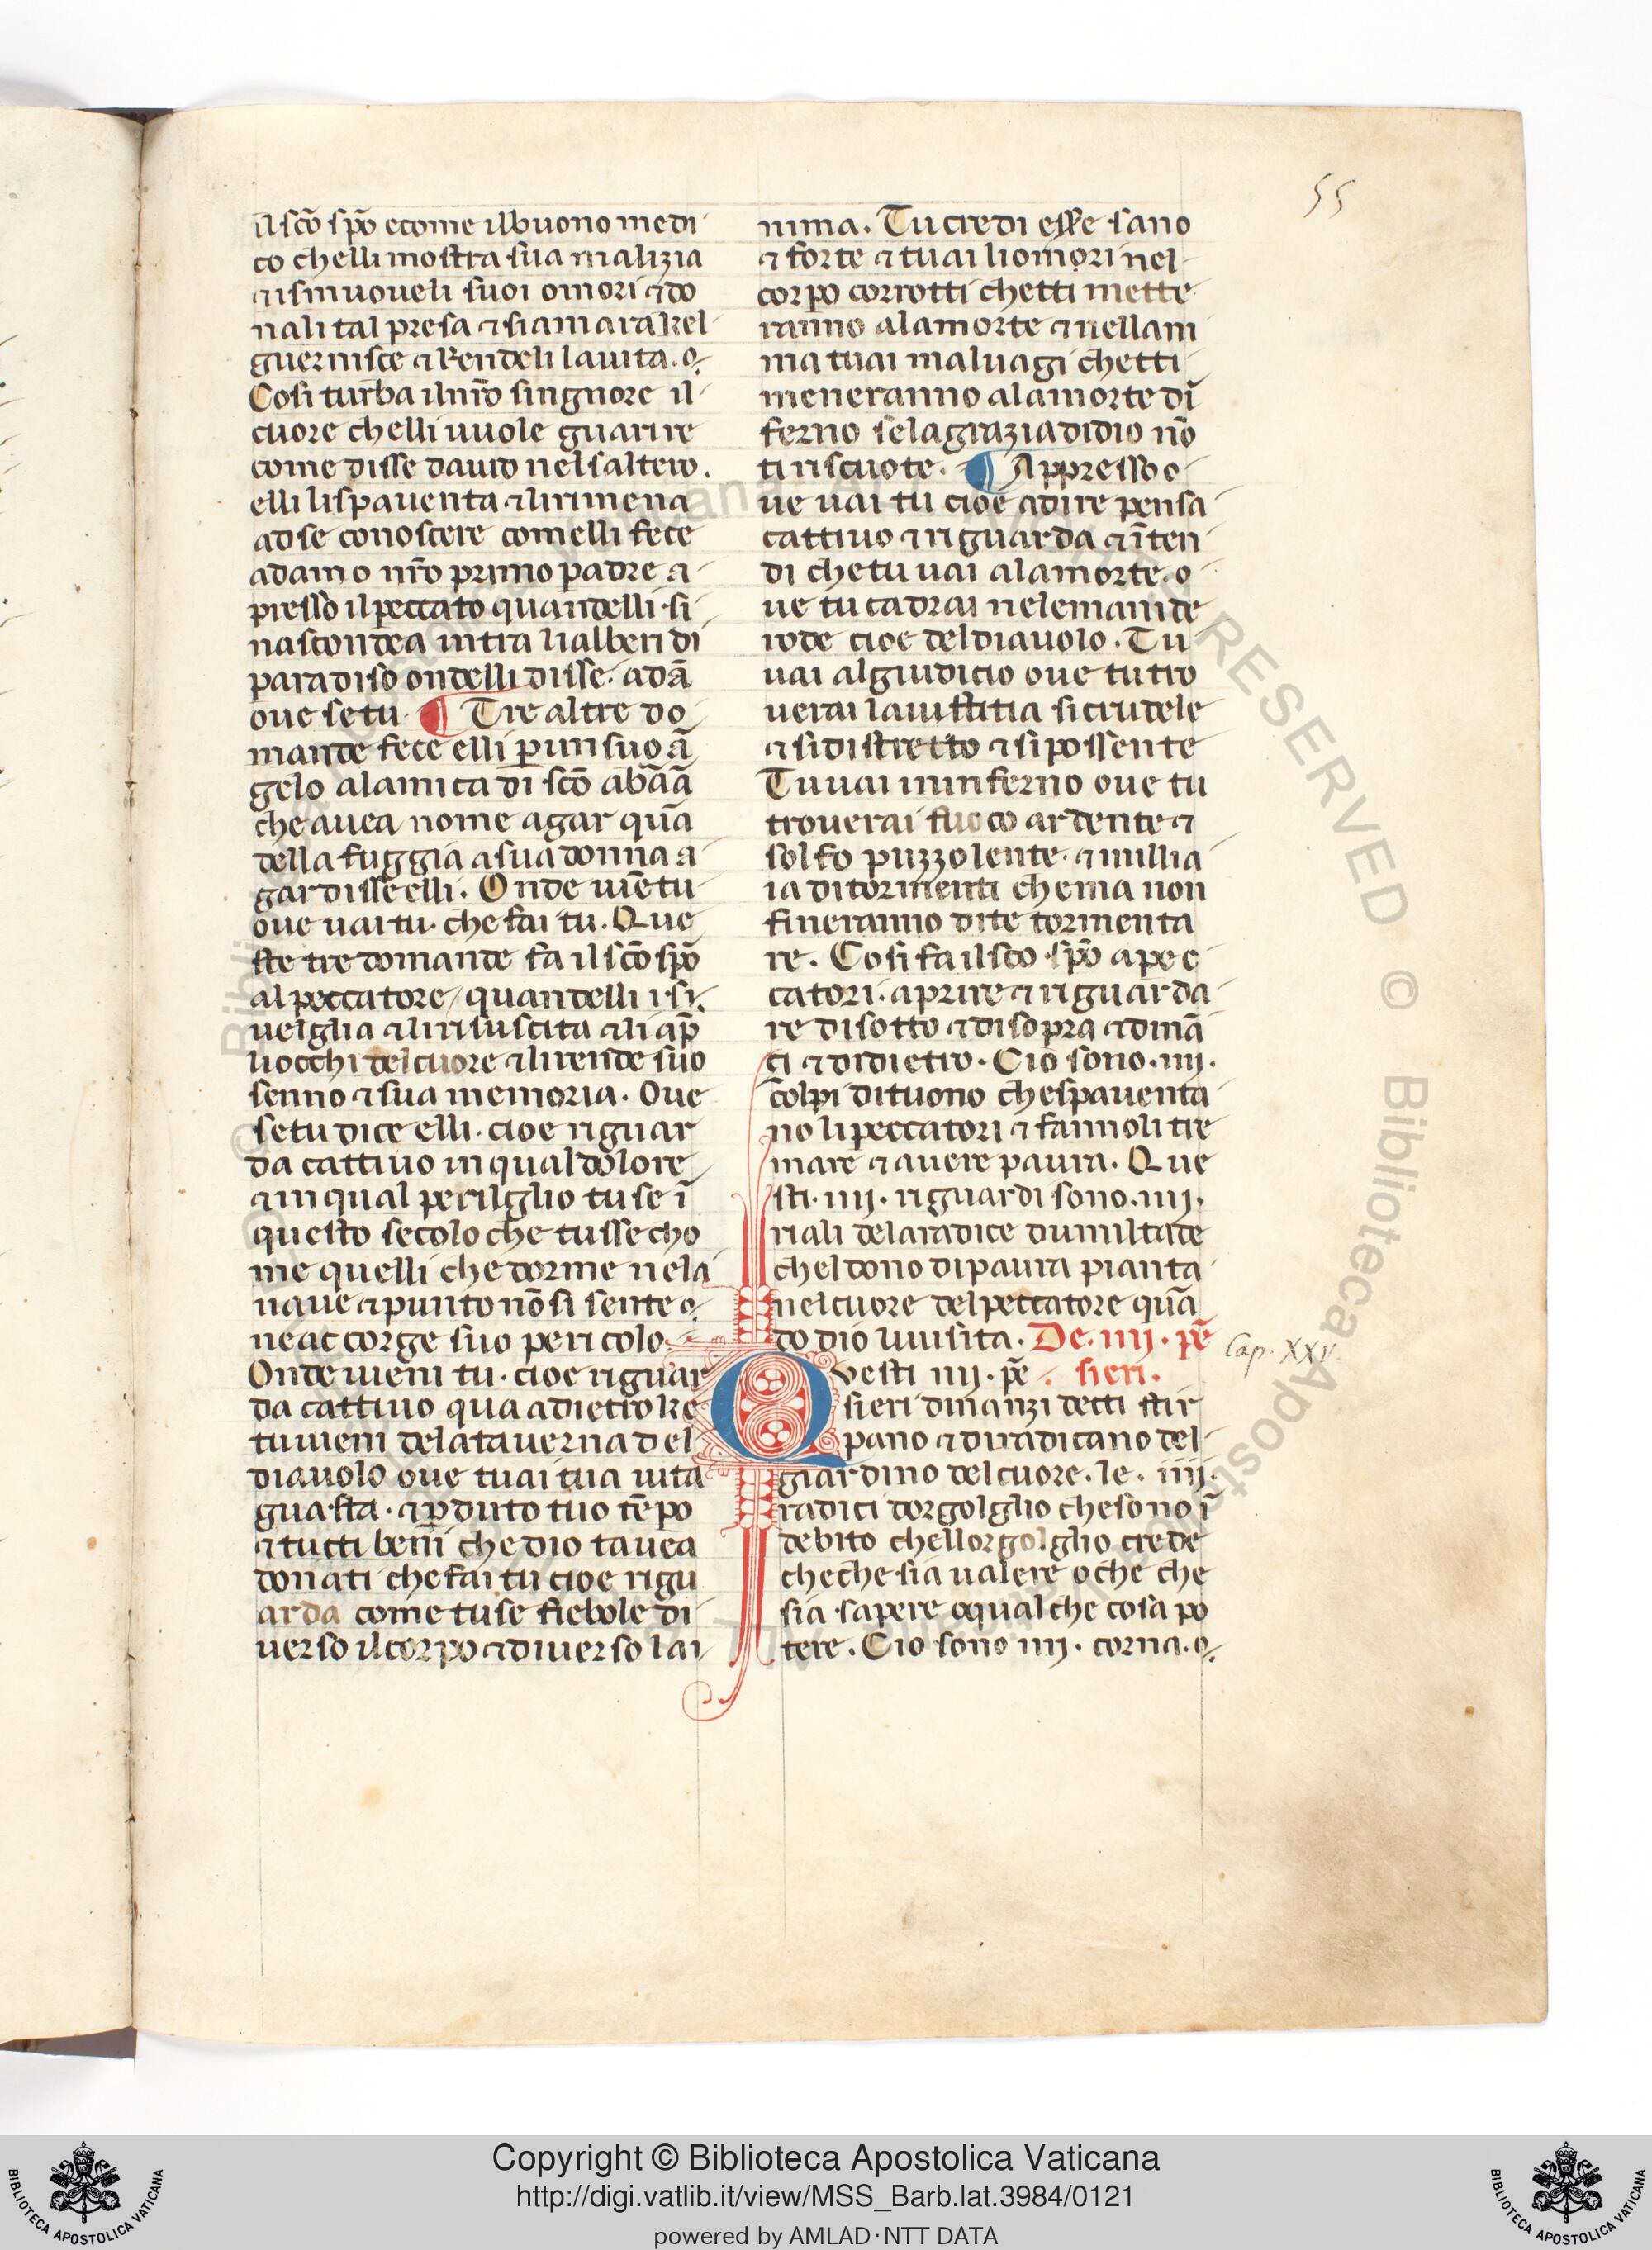 55
il sc̄o sp̄o ecome ilbuono medi
co chelli mostra sua malizia
⁊ismuoueli suoi omori ⁊do
nali tal presa ⁊si amara kel
guernisce ⁊ Rendeli lauita.
Cosi turba ilnr̄o singnore il
cuore chelli uuole guarire
come disse dauid nelsaltero.
elli lispauenta ⁊lirimena
adse conoscere comelli fece
adamo nr̄o primo padre a
presso il peccato quandelli si
nascondea intra lialberi di
paradiso ondelli disse. adā
oue setu. ¶ Tre altre do
mande fece elli ꝑ un suo ā
gelo alamica di sc̄o abāā
che auea nome agar quā
della fuggia asua donna a
gar disse elli. Onde uiētu
oue uaitu. che fai tu. Que
ste tre domande fa il sc̄o sp̄o
al peccatore / quandelli isi
uelglia ⁊lirisuscita ⁊li ap̄
liocchi delcuore ⁊lirende suo
senno ⁊sua memoria. Oue
setu dice elli. cioe riguar
da cattiuo in qual dolore
⁊in qual perilglio tu se ī
questo secolo che tusse cho
me quelli che dorme nela
naue ⁊punto nō si sente
ne ac corge suo pericolo.
Onde uieni tu. cioe riguar
da cattiuo qua adietro ke
tuuieni delatauerna del
diauolo oue tuai tua uita
guasta. ⁊ꝑduto tuo tēpo
⁊tutti beni che dio tauea
donati che fai tu cioe rigu
arda come tuse fiebole di
uerso il corpo ⁊diuerso lai
nima. Tu credi essere sano
⁊ forte ⁊ tuai liomori nel
corpo corrotti chetti mette
ranno alamorte ⁊nellani
ma tuai maluagi chetti
meneranno alamorte dī
ferno selagrazia didio nō
ti riscuote. ¶ Appresso o
ue uai tu cioe adire pensa
cattiuo ⁊ riguarda ⁊ īten
di che tu uai alamorte. o
ue tu cadrai nelemani de
rode cioe deldiauolo. Tu
uai algiudicio oue tu tro
uerai lauistitia si crudele
⁊ sidistretto ⁊ si possente
Tu uai in inferno oue tu
trouerai fuoco ardente ⁊
solfo puzzolente. ⁊ millia
ia di tormenti che mai non
fineranno dite tormenta
re. Cosi fa ilsco sp̄o a pec
catori. aprire ⁊ riguarda
re disotto ⁊disopra ⁊dinā
ci ⁊ didietro. Cio sono .iiij.
colpi dituono che spauenta
no li peccatori ⁊ fannoli tre
mare ⁊ auere paura. Que
sti. iiij. riguardi sono .iiij.
riali delaradice dumiltade
chel dono dipaura pianta
nelcuore delpeccatore quā
do dio luuisita. De. iiij. pē
Cap. XXV.
Questi iiij. pē. sieri.
sieri dinanzi detti stir
pano ⁊ diradicano del
giardino delcuore. le. iiij.
radici dorgolglio che sono ī
debito chellorgolglio crede
cheche sia ualere o che che
sia sapere o qual che cosa po
tere. Cio sono iiij. corna.
Copyright © Biblioteca Apostolica Vaticana
http://digi.vatlib.it/view/MSS_Barb.lat.3984/0121
powered by AMLAD·NTT DATA
BIBLIOTECA APOSTOLICA VATICANA
BIBLIOTECA APOSTOLICA VATICANA